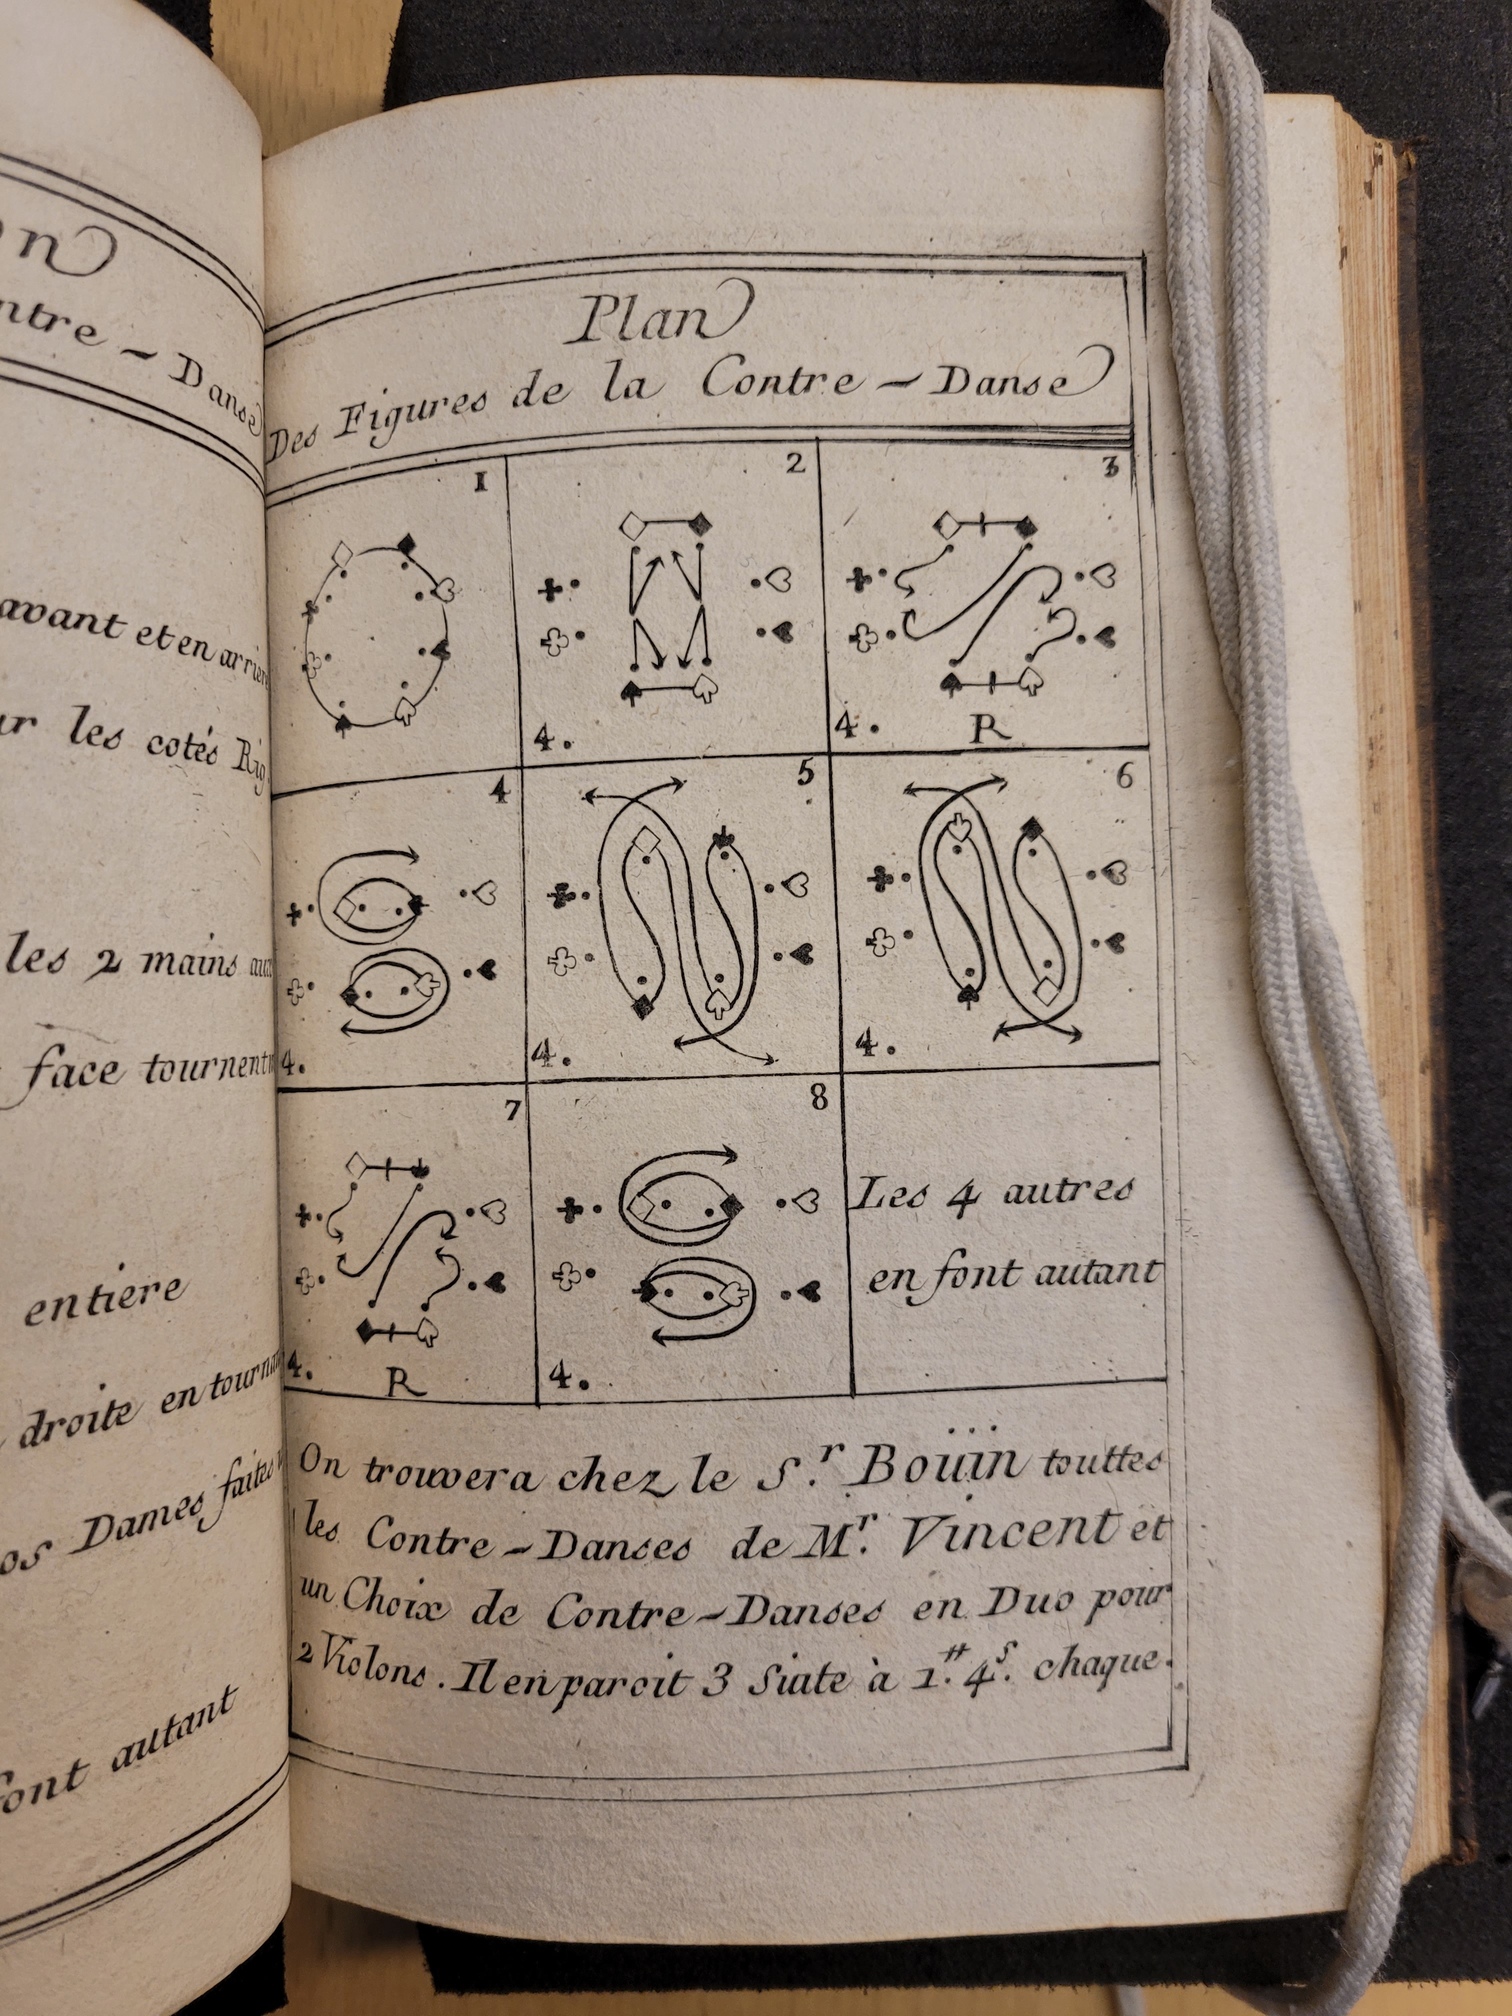 ntre - Danse
avant et en
les cotés
les 2 mains
face tournent
entiere
droite en
Dames faites
font autant
Plan
Des Figures de la Contre - Danse
1
2
3
4.
4.
R
4
5
6
4.
4.
4.
7
8
Les 4 autres
en font autant
4.
R
4.
On trouvera chez le S.r Boüin touttes
les Contre - Danses de M.r Vincent et
un Choix de Contre - Danses en Duo pour
2 Violons. Il en paroit 3 Siate à 1.# 4.s chaque.